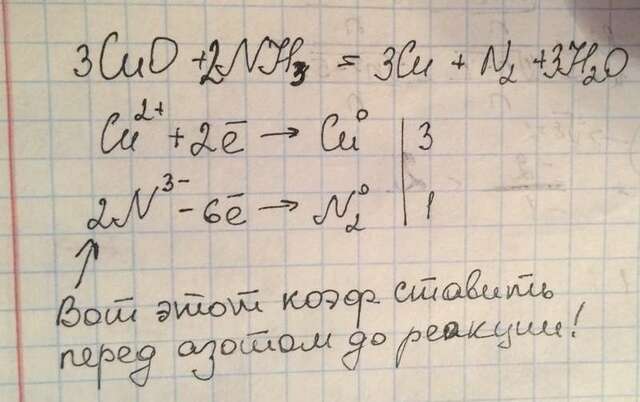 3CuO + 2NH₃ = 3Cu + N₂ + 3H₂O
Cu²⁺ + 2ē → Cu⁰ | 3
2N³⁻ - 6ē → N₂⁰ | 1
↑
Вот этот коэф ставить
перед азотом до реакции!